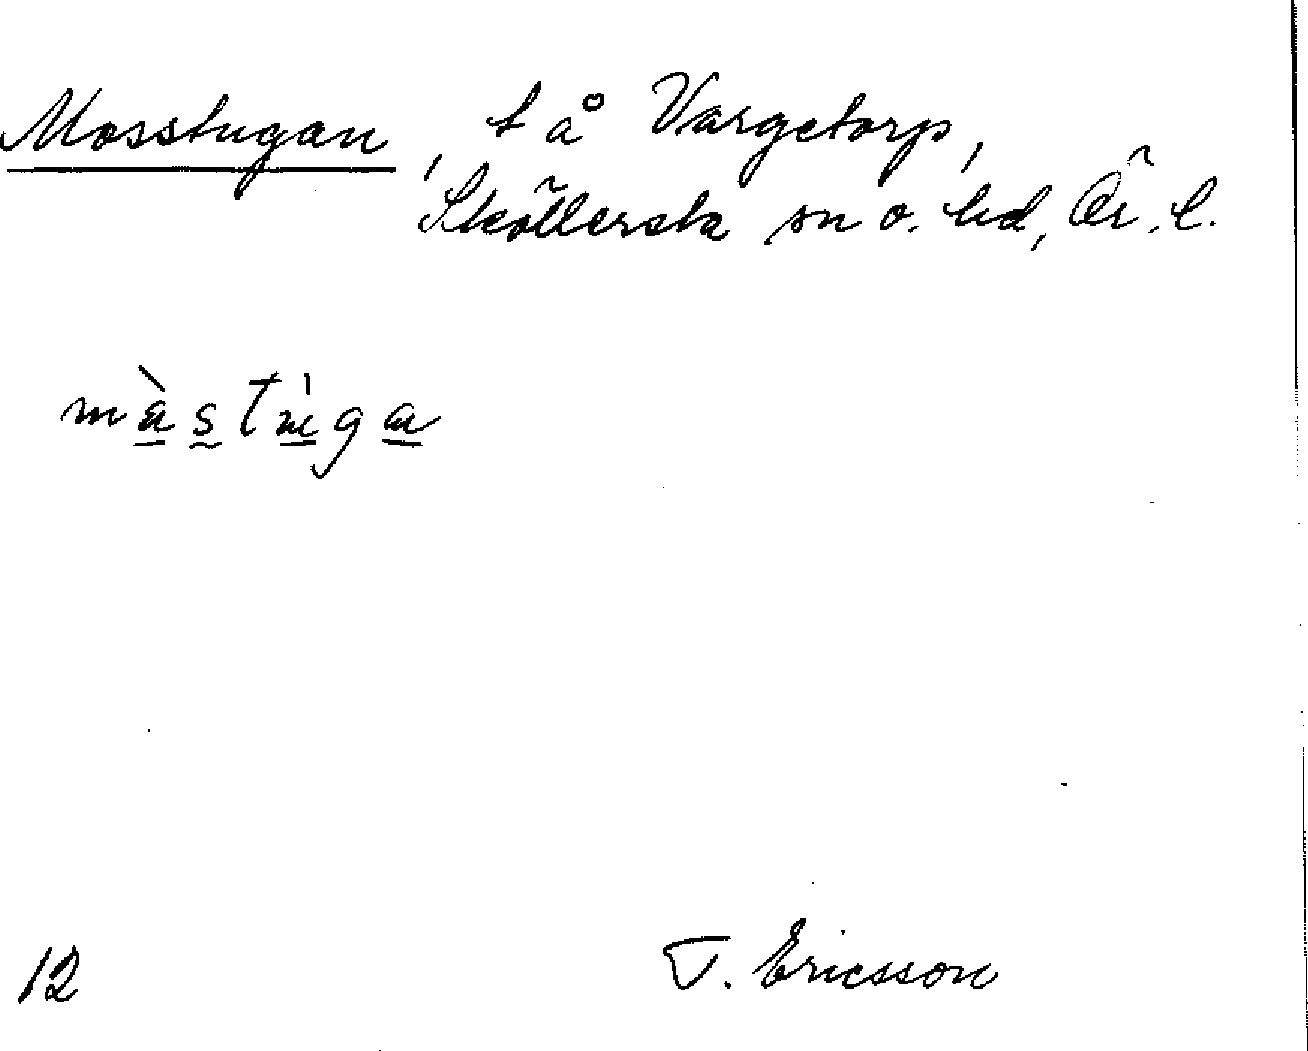 Mosstugan, t å Vargetorp,
Sköllersta sn o. hd, Ör. l.
màstùga
12
T. Ericsson